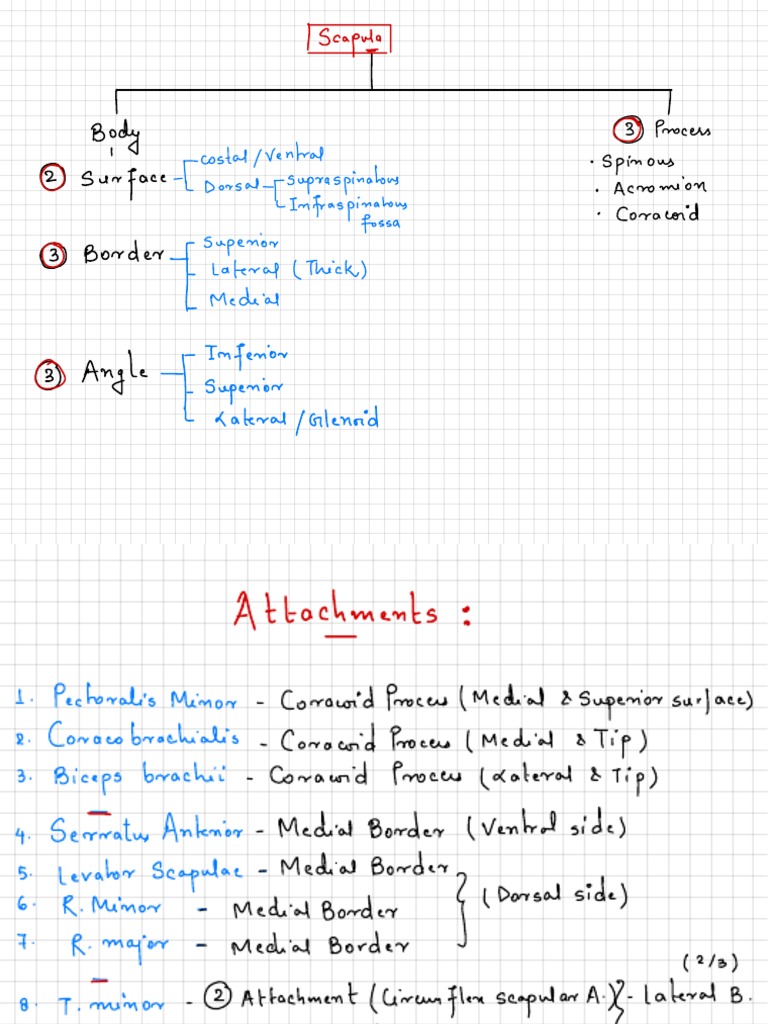 Scapula
Body
3 Process
2 Surface
Costal / Ventral
Dorsal
Supraspinatous
Infraspinatous
fossa
· Spinous
· Acromion
· Coracoid
3 Border
Superior
Lateral (Thick)
Medial
3 Angle
Inferior
Superior
Lateral / Glenoid
Attachments :
1. Pectoralis Minor - Coracoid Process (Medial & Superior surface)
2. Coracobrachialis - Coracoid Process (Medial & Tip)
3. Biceps brachii - Coracoid Process (Lateral & Tip)
4. Serratus Anterior - Medial Border (Ventral side)
5. Levator Scapulae - Medial Border
6. R. Minor - Medial Border
(Dorsal side)
7. R. major - Medial Border
(2/3)
8. T. minor - 2 Attachment (Circumflex scapular A.) - Lateral B.